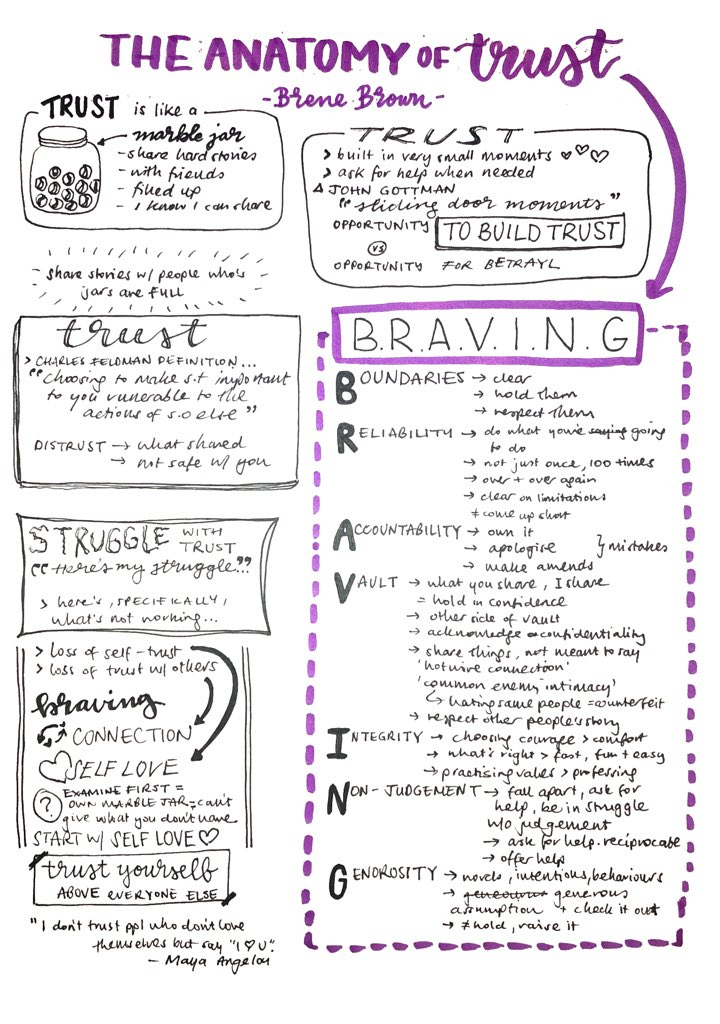 THE ANATOMY OF trust
-Brene Brown-
TRUST is like a
marble jar
- share hard stories
- with friends
- filled up
- I know I can share
share stories w/ people who's
jars are FULL
TRUST
> built in very small moments
> ask for help when needed
JOHN GOTTMAN
"sliding door moments"
OPPORTUNITY TO BUILD TRUST
VS
OPPORTUNITY FOR BETRAYL
trust
> CHARLES FELDMAN DEFINITION...
"choosing to make s.t important
to you vunerable to the
actions of s.o else"
DISTRUST → what shared
→ not safe w/ you
STRUGGLE WITH
TRUST
"Here's my struggle..."
> here's, SPECIFICALLY,
what's not working...
> loss of self-trust
> loss of trust w/ others
braving
CONNECTION
SELF LOVE
? EXAMINE FIRST =
OWN MARBLE JAR = can't
give what you don't have
START W/ SELF LOVE ♡
trust yourself
ABOVE EVERYONE ELSE
"I don't trust ppl who don't love
themselves but say "I ♡ U".
- Maya Angelou
B.R.A.V.I.N.G
BOUNDARIES → clear
→ hold them
→ respect them
RELIABILITY → do what you're saying going
to do
→ not just once, 100 times
→ over + over again
→ clear on limitations
≠ come up short
ACCOUNTABILITY → own it
→ apologise } mistakes
→ make amends
VAULT → what you share, I share
= hold in confidence
→ other side of vault
→ acknowledge confidentiality
→ share things, not meant to say
'hotwire connection'
'common enemy intimacy'
↳ hating same people = counterfeit
→ respect other people's story
INTEGRITY → choosing courage > comfort
→ what's right > fast, fun + easy
→ practising values > professing
NON-JUDGEMENT → fall apart, ask for
help, be in struggle
w/o judgement
→ ask for help - reciprocate
→ offer help
GENOROSITY → words, intentions, behaviours
→ generous
assumption + check it out
→ ≠ hold, raise it